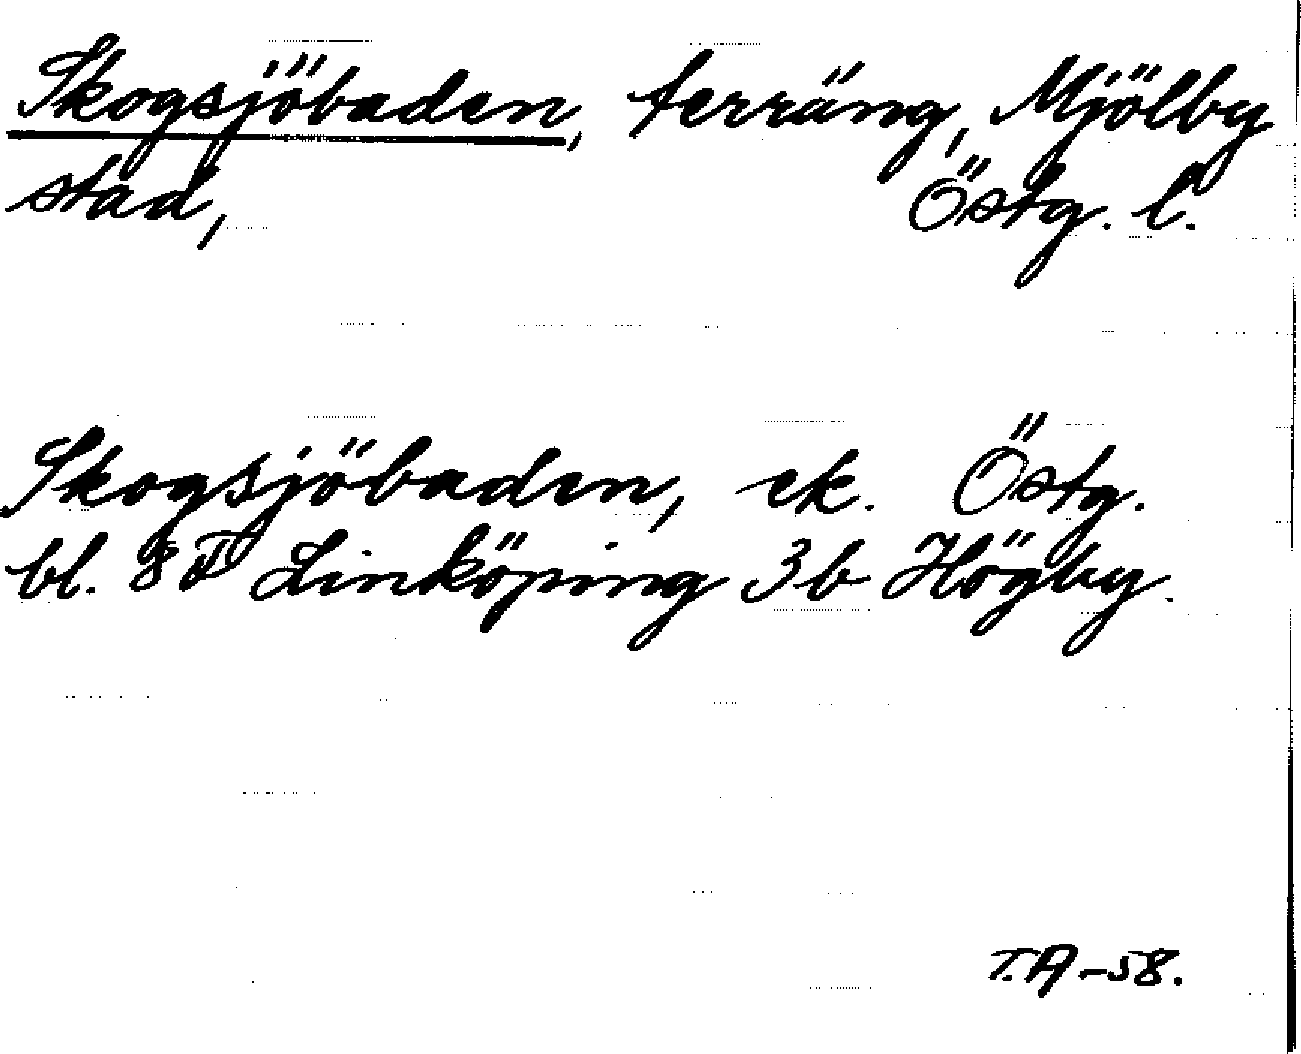 Skogsjöbaden, terräng, Mjölby
stad, Östg. l.
Skogsjöbaden, ek. Östg.
bl. 8F Linköping 3b Högby.
T.A-58.